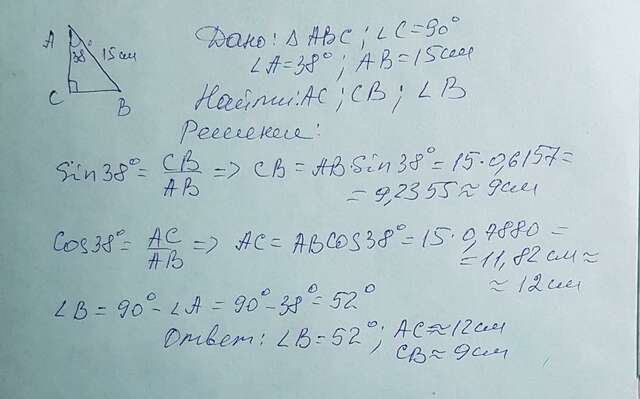 Дано: Δ ABC; ∠C=90°
∠A=38°; AB=15см
Найти: AC; CB; ∠B
Решение:
A
38°
15см
C
B
Sin38°= CB/AB => CB= AB·Sin38°=15·0,6157=
= 9,2355≈9см
Cos38°= AC/AB => AC= ABCos38°=15·0,7880=
=11,82см≈
≈12см
∠B= 90°-∠A= 90°-38°=52°
Ответ: ∠B=52°; AC≈12см
CB≈9см